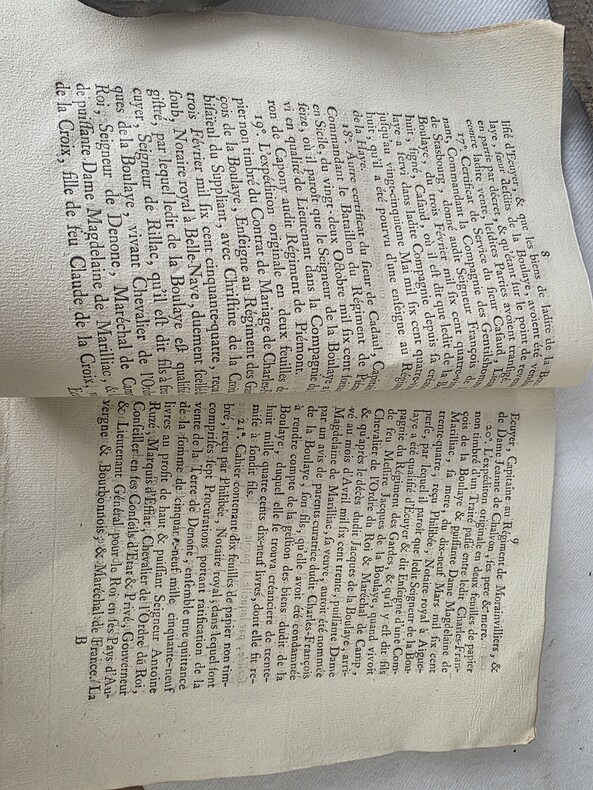 8
lifié d'Ecuyer, & que les biens de ladite de la
laye, sœur desdits de la Boulaye, avoient été
en partie par décret, & qu'étant sur le point de
contre ladite vente, lesdites Parties avoient transigé
17°. Certificat de Service du sieur Casaud,
nant, Commandant la Compagnie des Gentilshommes
de Strasbourg, donné audit Seigneur François
Boulaye, du trois Février mil six cent quatre-
huit, signé, Casaud, où il est dit que ledit de la
laye a servi dans ladite Compagnie depuis sa
jusqu'au vingt-cinquieme Mai mil six cent quatre-
huit, qu'il a été pourvu d'une enseigne au
de la Haye.
18°. Autre certificat du sieur de Cadail,
Commandant le Bataillon du Régiment de
en Sicile, du vingt-deux Octobre mil six cent
seize, où il paroît que le Seigneur de la Boulaye
vi en qualité de Lieutenant dans la Compagnie
ron de Capony audit Régiment de Piémont.
19°. L'expédition originale en deux feuilles
pier non timbré du Contrat de Mariage de Charles-
çois de la Boulaye, Enseigne au Régiment des
bisaïeul du Suppliant, avec Christine de la
trois Février mil six cent cinquante-quatre,
soub, Notaire royal à Belle-Nave, duement scellé
gistré, par lequel ledit de la Boulaye est qualifié
cuyer, Seigneur de Rillac, qu'il est dit fils à
ques de la Boulaye, vivant Chevalier de l'Ordre
Roi, Seigneur de Denone, Maréchal de
de puissante Dame Magdelaine de Marillac, &
de la Croix, fille de feu Claude de la Croix,
9
Ecuyer, Capitaine au Régiment de Morainvilliers, &
de Dame Jeanne de Chalus, ses pere & mere.
20°. L'expédition originale en deux feuilles de papier
non timbré d'un Traité passé entre ledit Charles-Fran-
çois de la Boulaye & puissante Dame Magdelaine de
Marillac, sa mere, du dix-neuf Mars mil six cent
trente-quatre, reçu Philibée, Notaire royal à Aigue-
perse, par lequel il paroît que ledit Seigneur de la Bou-
laye a été qualifié d'Ecuyer & dit Enseigne d'une Com-
pagnie du Régiment des Gardes, & qu'il y est dit fils
de feu Messire Jacques de la Boulaye, quand vivoit
Chevalier de l'Ordre du Roi & Maréchal de Camp,
& qu'après le décès dudit Jacques de la Boulaye, arri-
vé au mois d'Avril mil six cent trente, puissante Dame
Magdelaine de Marillac, sa veuve, auroit été nommée
par un avis de parents curatrice dudit Charles-François
de la Boulaye, son fils, qu'elle avoit été condamnée
à rendre compte de la gestion des biens dudit de la
Boulaye, duquel elle se trouva créanciere de trente-
huit mille quatre cents dix-neuf livres, dont elle fit re-
mise à sondit fils.
21°. Cahier contenant dix feuilles de papier non tim-
bré, reçu par Philibée, Notaire royal; dans lequel sont
comprises sept Procurations portant ratification de la
vente de la Terre de Denone; ensemble une quittance
de la somme de cinquante-neuf mille cinquante-neuf
livres au profit de haut & puissant Seigneur Antoine
Ruzé, Marquis d'Effiat, Chevalier de l'Ordre du Roi,
Conseiller en ses Conseils d'Etat & Privé, Gouverneur
& Lieutenant Général pour le Roi en les Pays d'Au-
vergne & Bourbonnois, & Maréchal de France. La
B